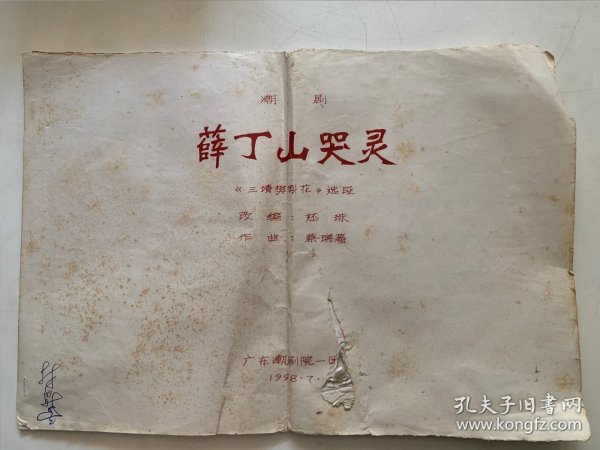 潮剧
薛丁山哭灵
《三请樊梨花》选段
改编：还珠
作曲：蔡瑞藩
广东潮剧院一团
1998.7.
孔夫子旧書网
www.kongfz.com